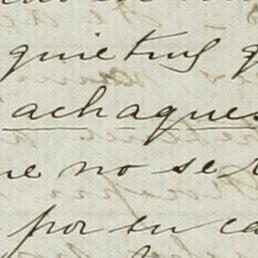 quietud q
achaques
ne no se
por su ca